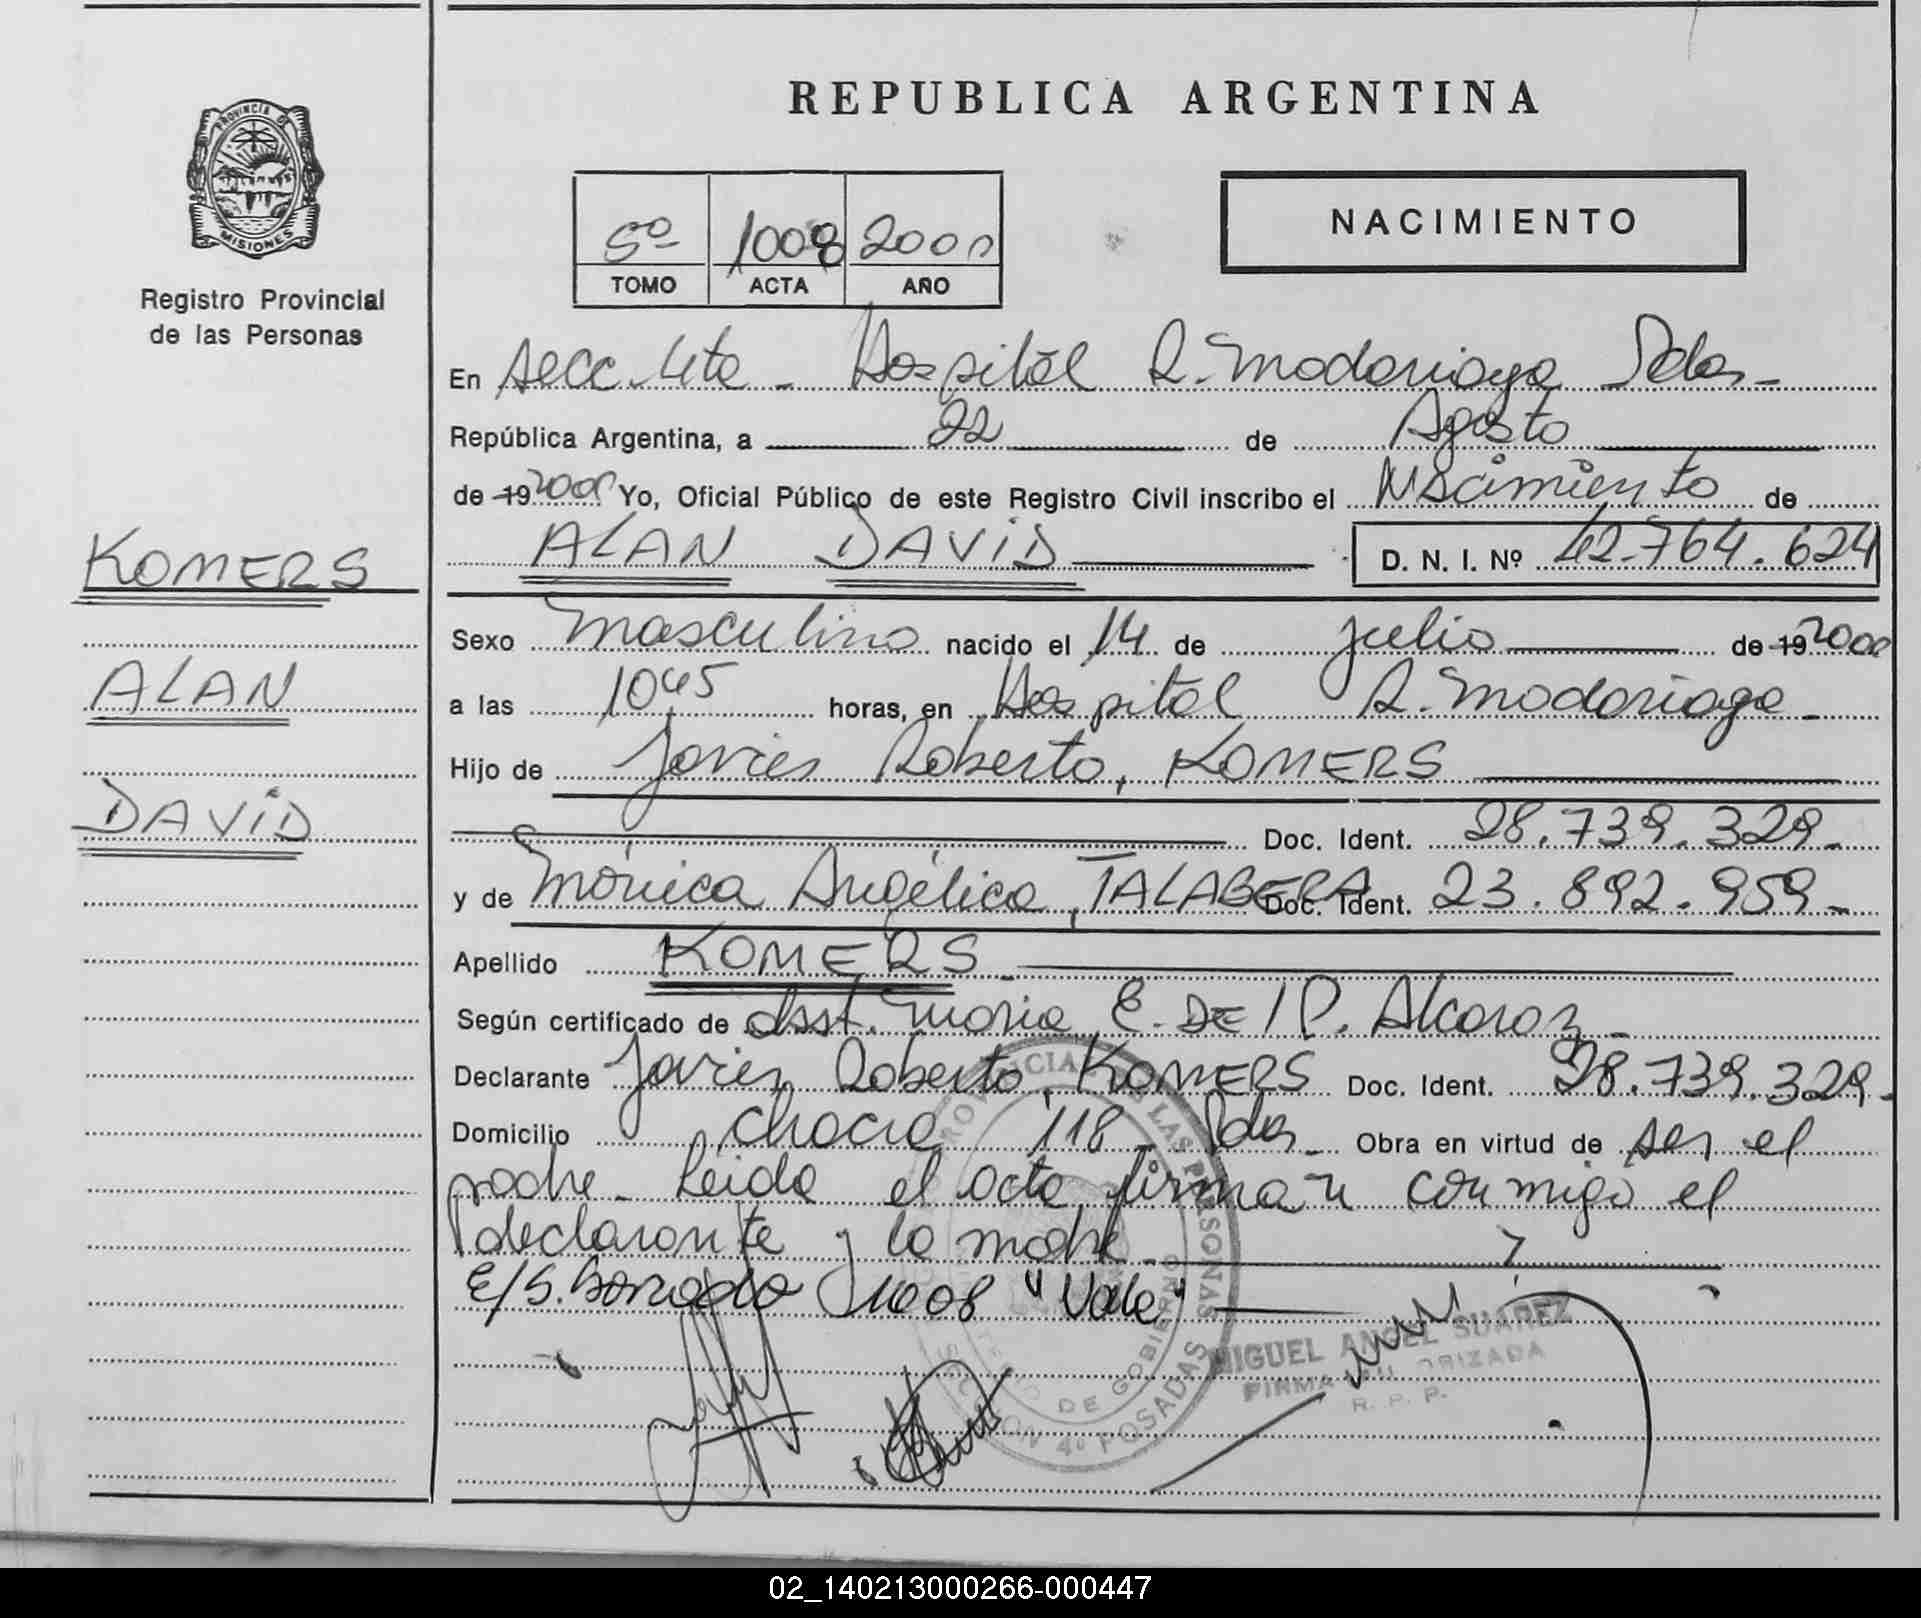 REPUBLICA ARGENTINA
PROVINCIA DE MISIONES
Registro Provincial
de las Personas
5º 1008 2000
TOMO ACTA AÑO
NACIMIENTO
En Secc. 4ta - Hospital R. Madariaga Pdas -
República Argentina, a 22 de Agosto
de 19 2000 Yo, Oficial Público de este Registro Civil inscribo el Nacimiento de
ALAN DAVID D. N. I. Nº 42.764.624
KOMERS
ALAN
DAVID
Sexo Masculino nacido el 14 de julio de 19 2000
a las 1045 horas, en Hospital R. Madariaga -
Hijo de Javier Roberto, KOMERS
Doc. Ident. 28.739.329.-
y de Mónica Angélica, TALABERA Doc. Ident. 23.892.959-
Apellido KOMERS -
Según certificado de Asst. Maria E. DE P. Alcaraz -
Declarante Javier Roberto, KOMERS Doc. Ident. 28.739.329.-
Domicilio Chacra 118 - Pdas - Obra en virtud de ser el
padre - Leida el acta firman conmigo el
declarante y la madre -
E/S. Borrado 1008 "Vale"
MIGUEL ANGEL SUAREZ
FIRMA AUTORIZADA
R. P. P.
SECCION 4º POSADAS
DE GOBIERNO
02_140213000266-000447